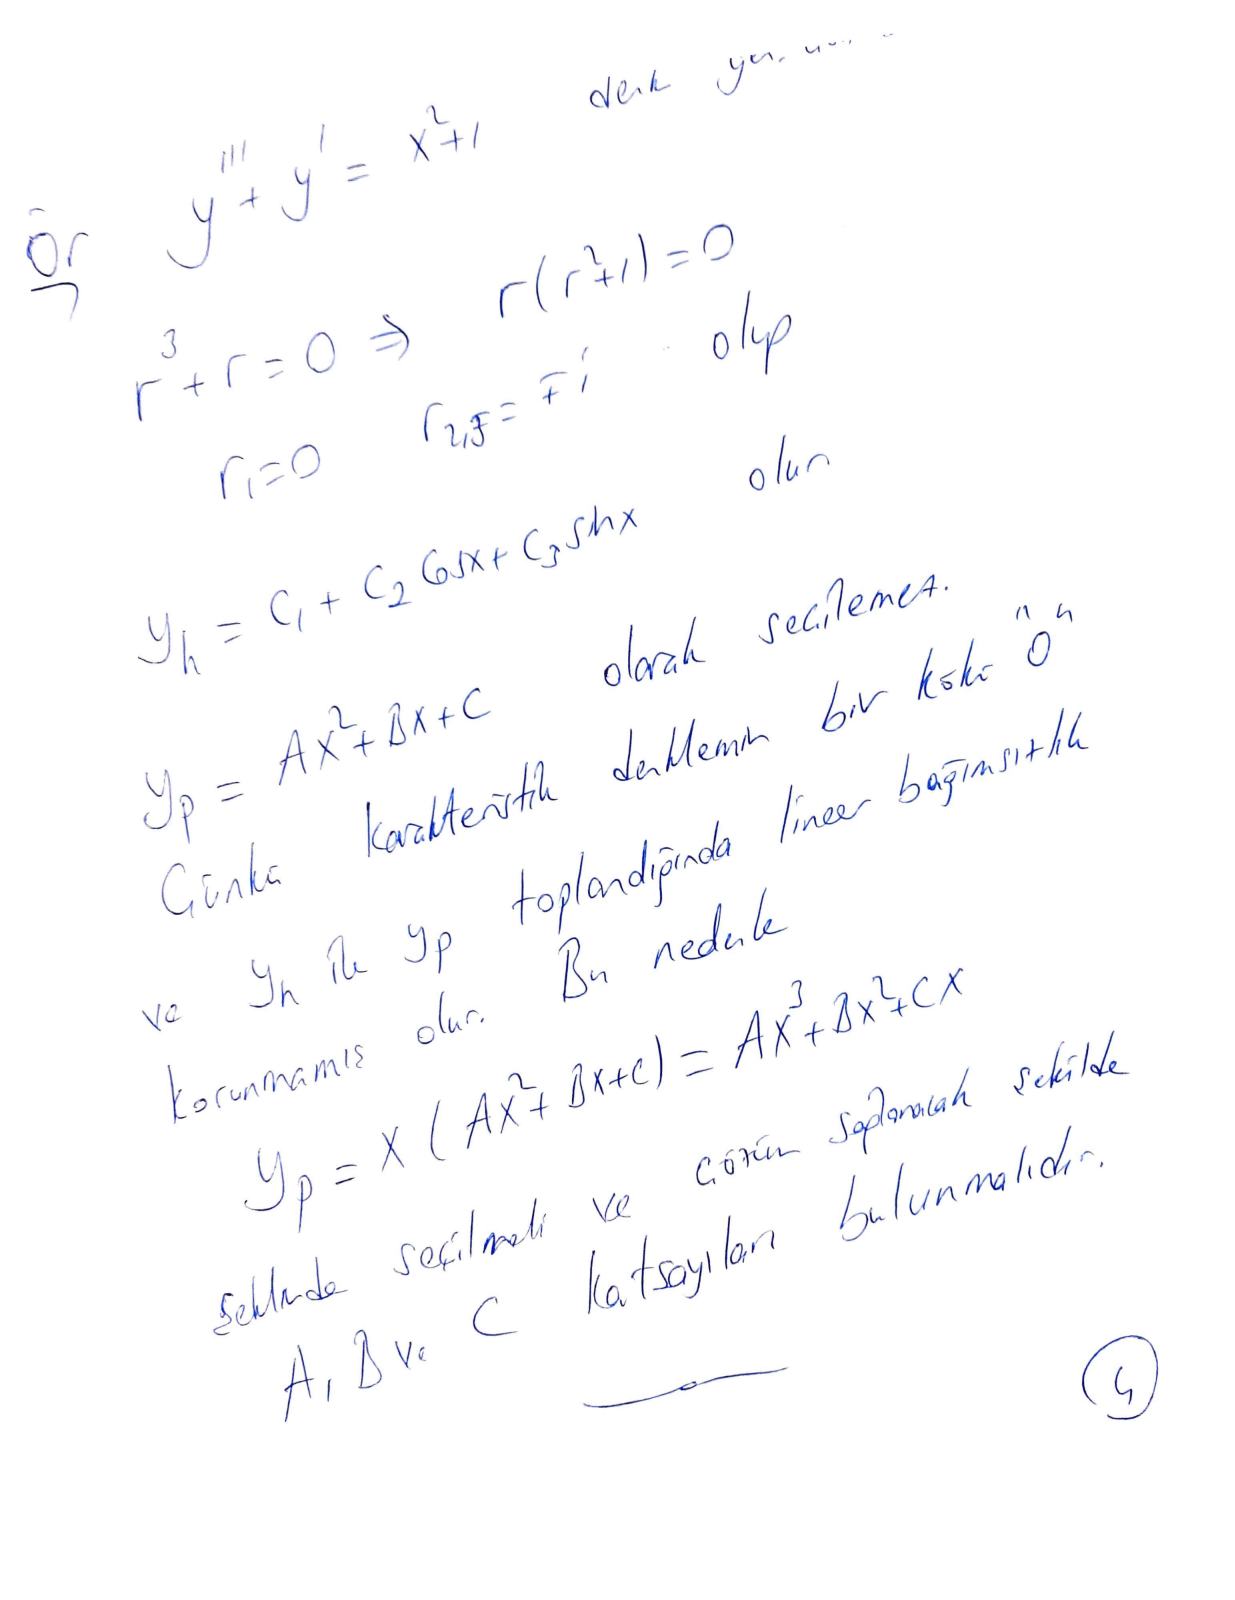 Ör y''' + y' = x²+1 denk
r³+r=0 ⇒ r(r²+1)=0
r₁=0 r₂,₃=∓i olup
y_h = C₁ + C₂ Cosx + C₃ sinx olur
y_p = Ax²+Bx+C olarak seçilemez.
Çünkü karakteristik denklemin bir kökü "0"
ve y_h ile y_p toplandığında lineer bağımsızlık
korunmamış olur. Bu nedenle
y_p = x(Ax²+Bx+C) = Ax³+Bx²+Cx
şeklinde seçilmeli ve çözüm sağlanacak şekilde
A, B ve C katsayıları bulunmalıdır.
4